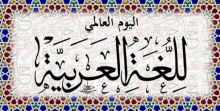 اليوم العالمي
للُّغَةِ العَرَبِيَّةِ